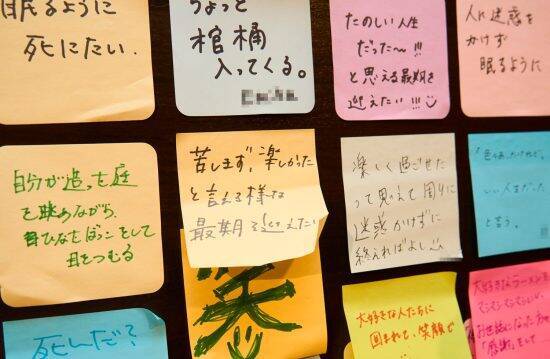 眠るように
死にたい.
ちょっと
棺桶
入ってくる。
たのしい人生
だった〜!!!
と思える最期を
迎えたい!!!
人に迷惑を
かけず
眠るように
自分が造った庭
を眺めながら、
日ひなたぼっこをして
目をつむる
苦しまず、楽しかった
と言える様な
最期を迎えたい
楽しく過ごせた
って思えて周りに
迷惑かけずに
終えればよし
いい人生だった
と言う。
死んだ?
笑
大好きな人たちに
囲まれて、笑顔で
大好きなラーメンを
お世話になった
「感謝」をして